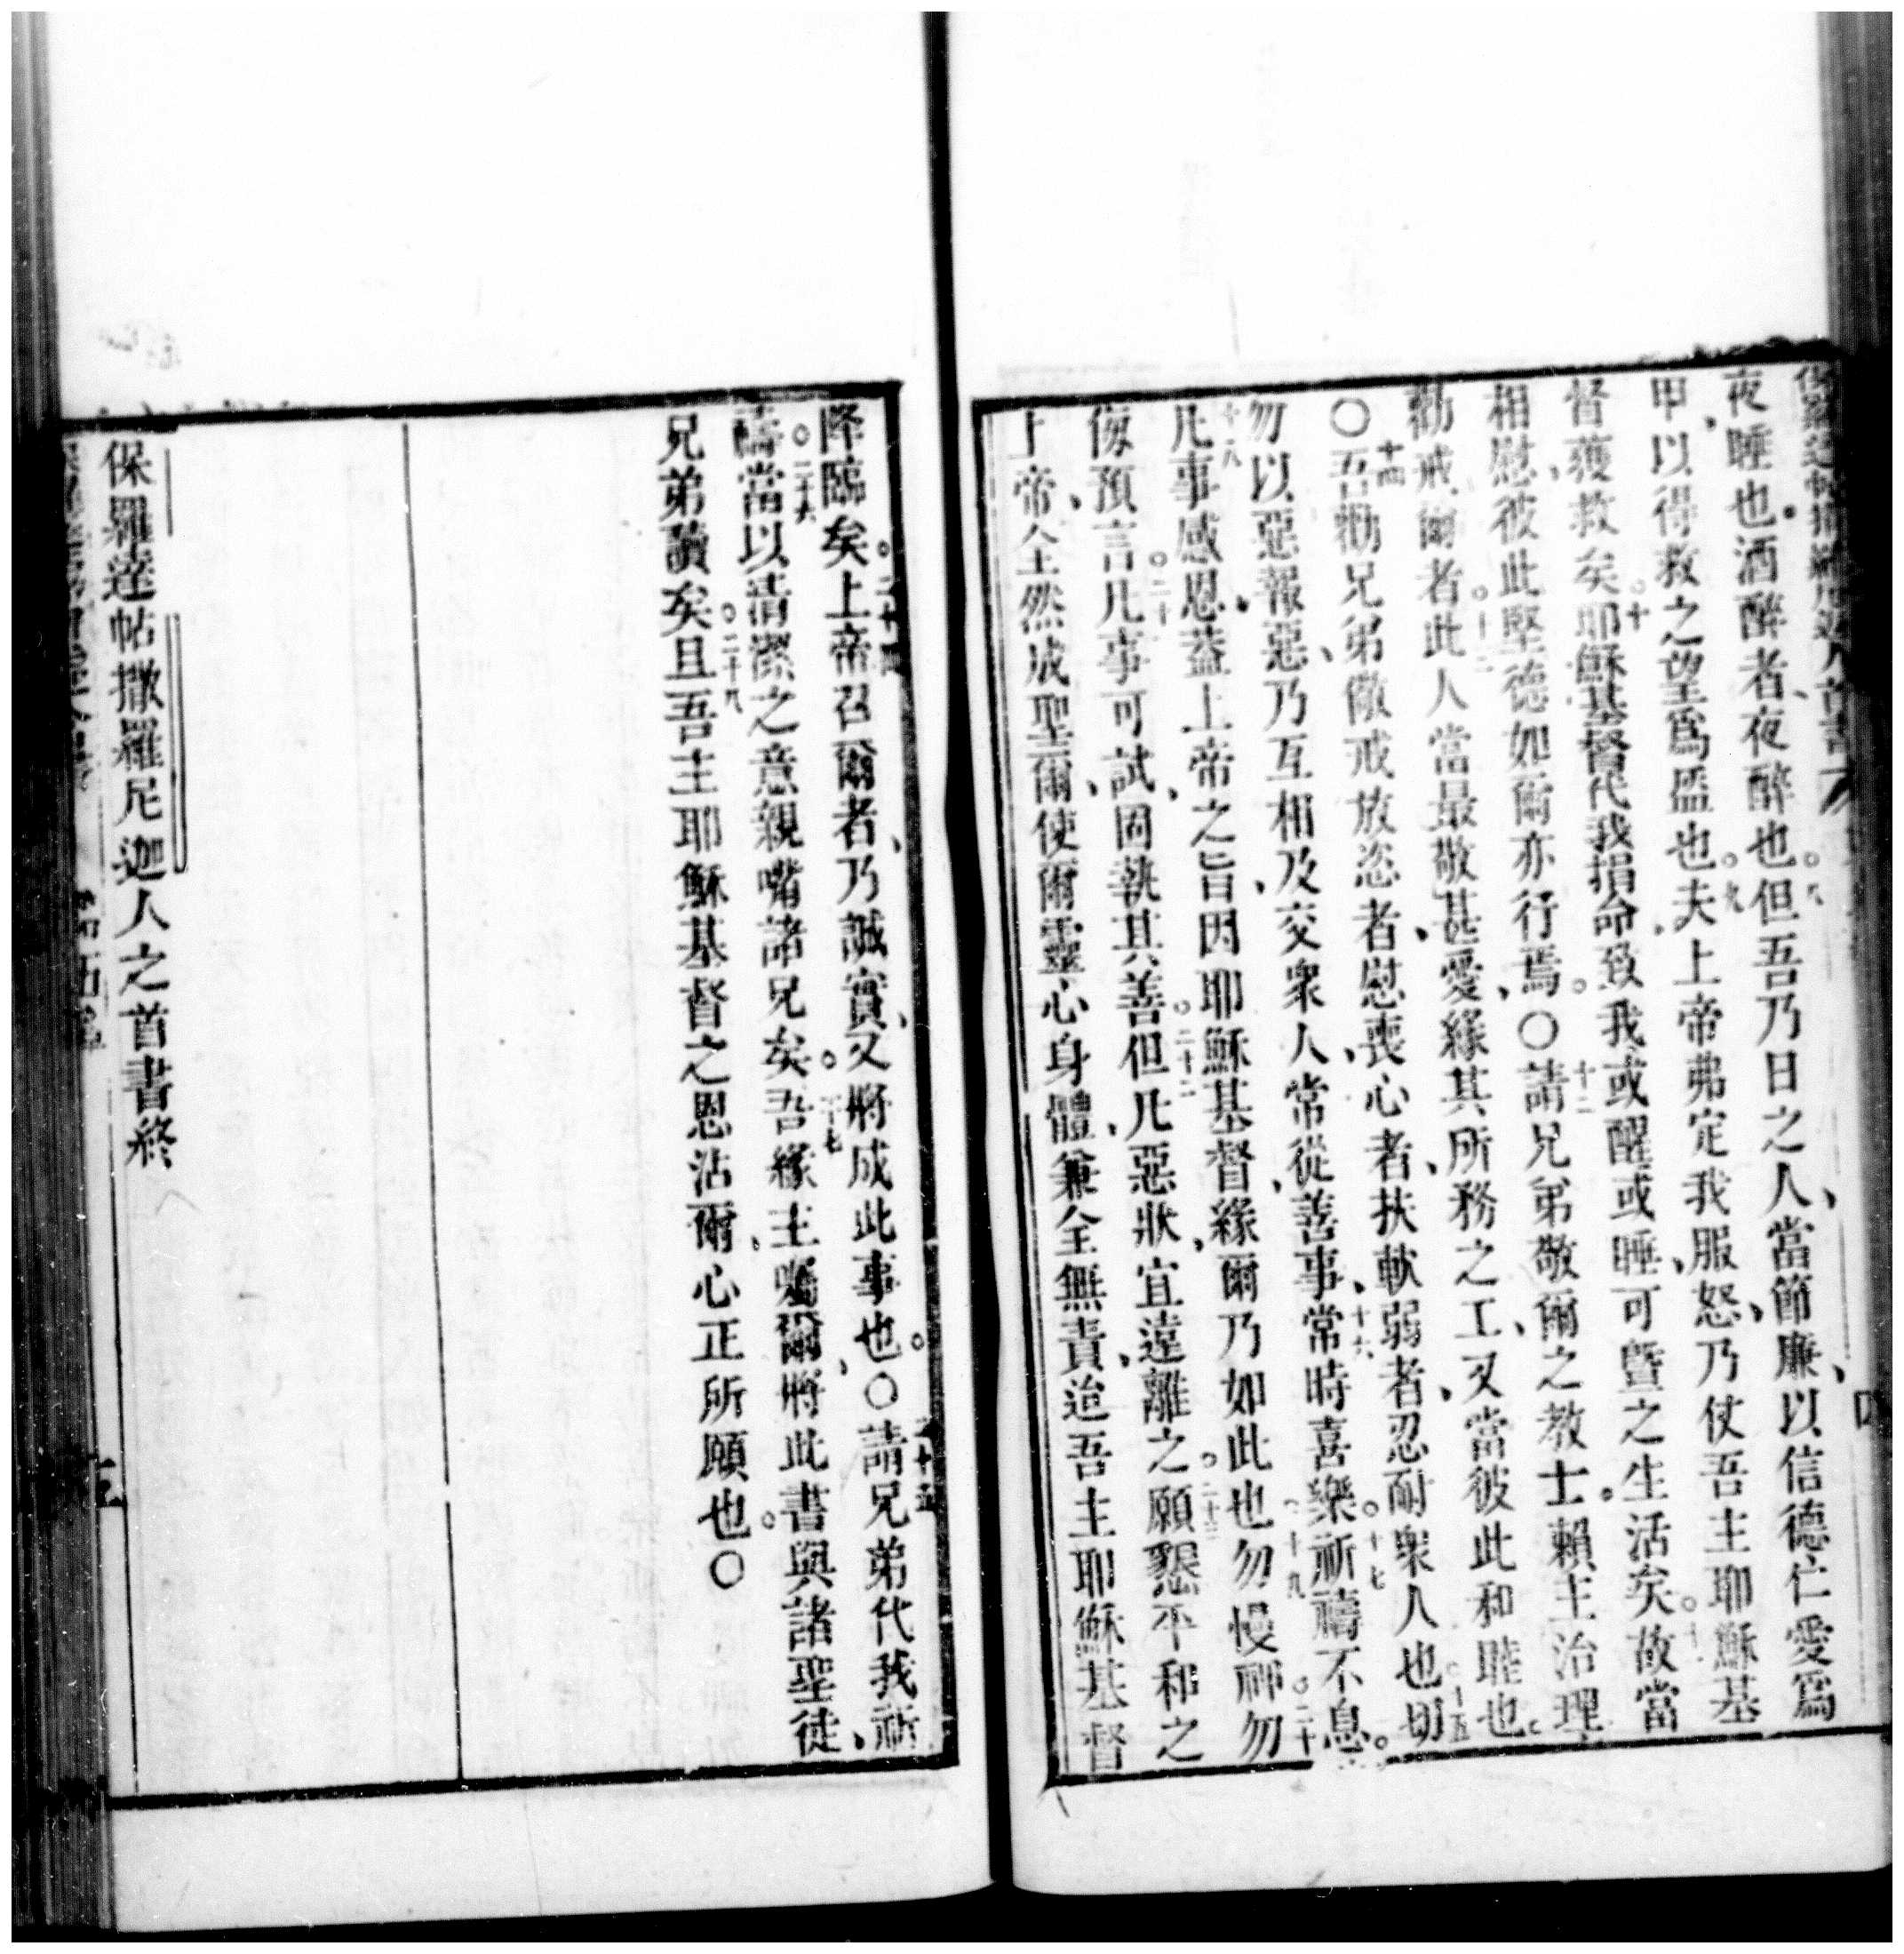 保羅達帖撒羅尼迦人首書
夜睡也酒醉者、夜醉也。八但吾乃日之人、當節廉、以信德仁愛爲
甲、以得救之望爲盔也。九夫上帝弗定我服怒、乃仗吾主耶穌基
督獲救矣。十耶穌基督代我捐命、致我或醒或睡、可曁之生活矣。十一故當
相慰、彼此堅德、如爾亦行焉。〇十二請兄弟敬爾之教士、賴主治理
勸戒爾者。十三此人當最敬甚愛、緣其所務之工、又當彼此和睦也。
〇十四吾勸兄弟儆戒放恣者、慰喪心者、扶軟弱者、忍耐衆人也。十五切
勿以惡報惡、乃互相及交衆人、常從善事、十六常時喜樂、十七祈禱不息。
十八凡事感恩、蓋上帝之旨、因耶穌基督、緣爾乃如此也。十九勿慢神、二十勿
侮預言。二十一凡事可試、固執其善。二十二但凡惡狀、宜遠離之。二十三願懇平和之
上帝、全然成聖爾、使爾靈心身體、兼全無責、迨吾主耶穌基督
降臨矣。二十四上帝召爾者、乃誠實、又將成此事也。〇二十五請兄弟代我祈
禱。二十六當以清潔之意、親嘴諸兄矣。二十七吾緣主囑爾、將此書與諸聖徒、
兄弟讀矣。二十八且吾主耶穌基督之恩沾爾、心正所願也。〇
保羅達帖撒羅尼迦人之首書終
五